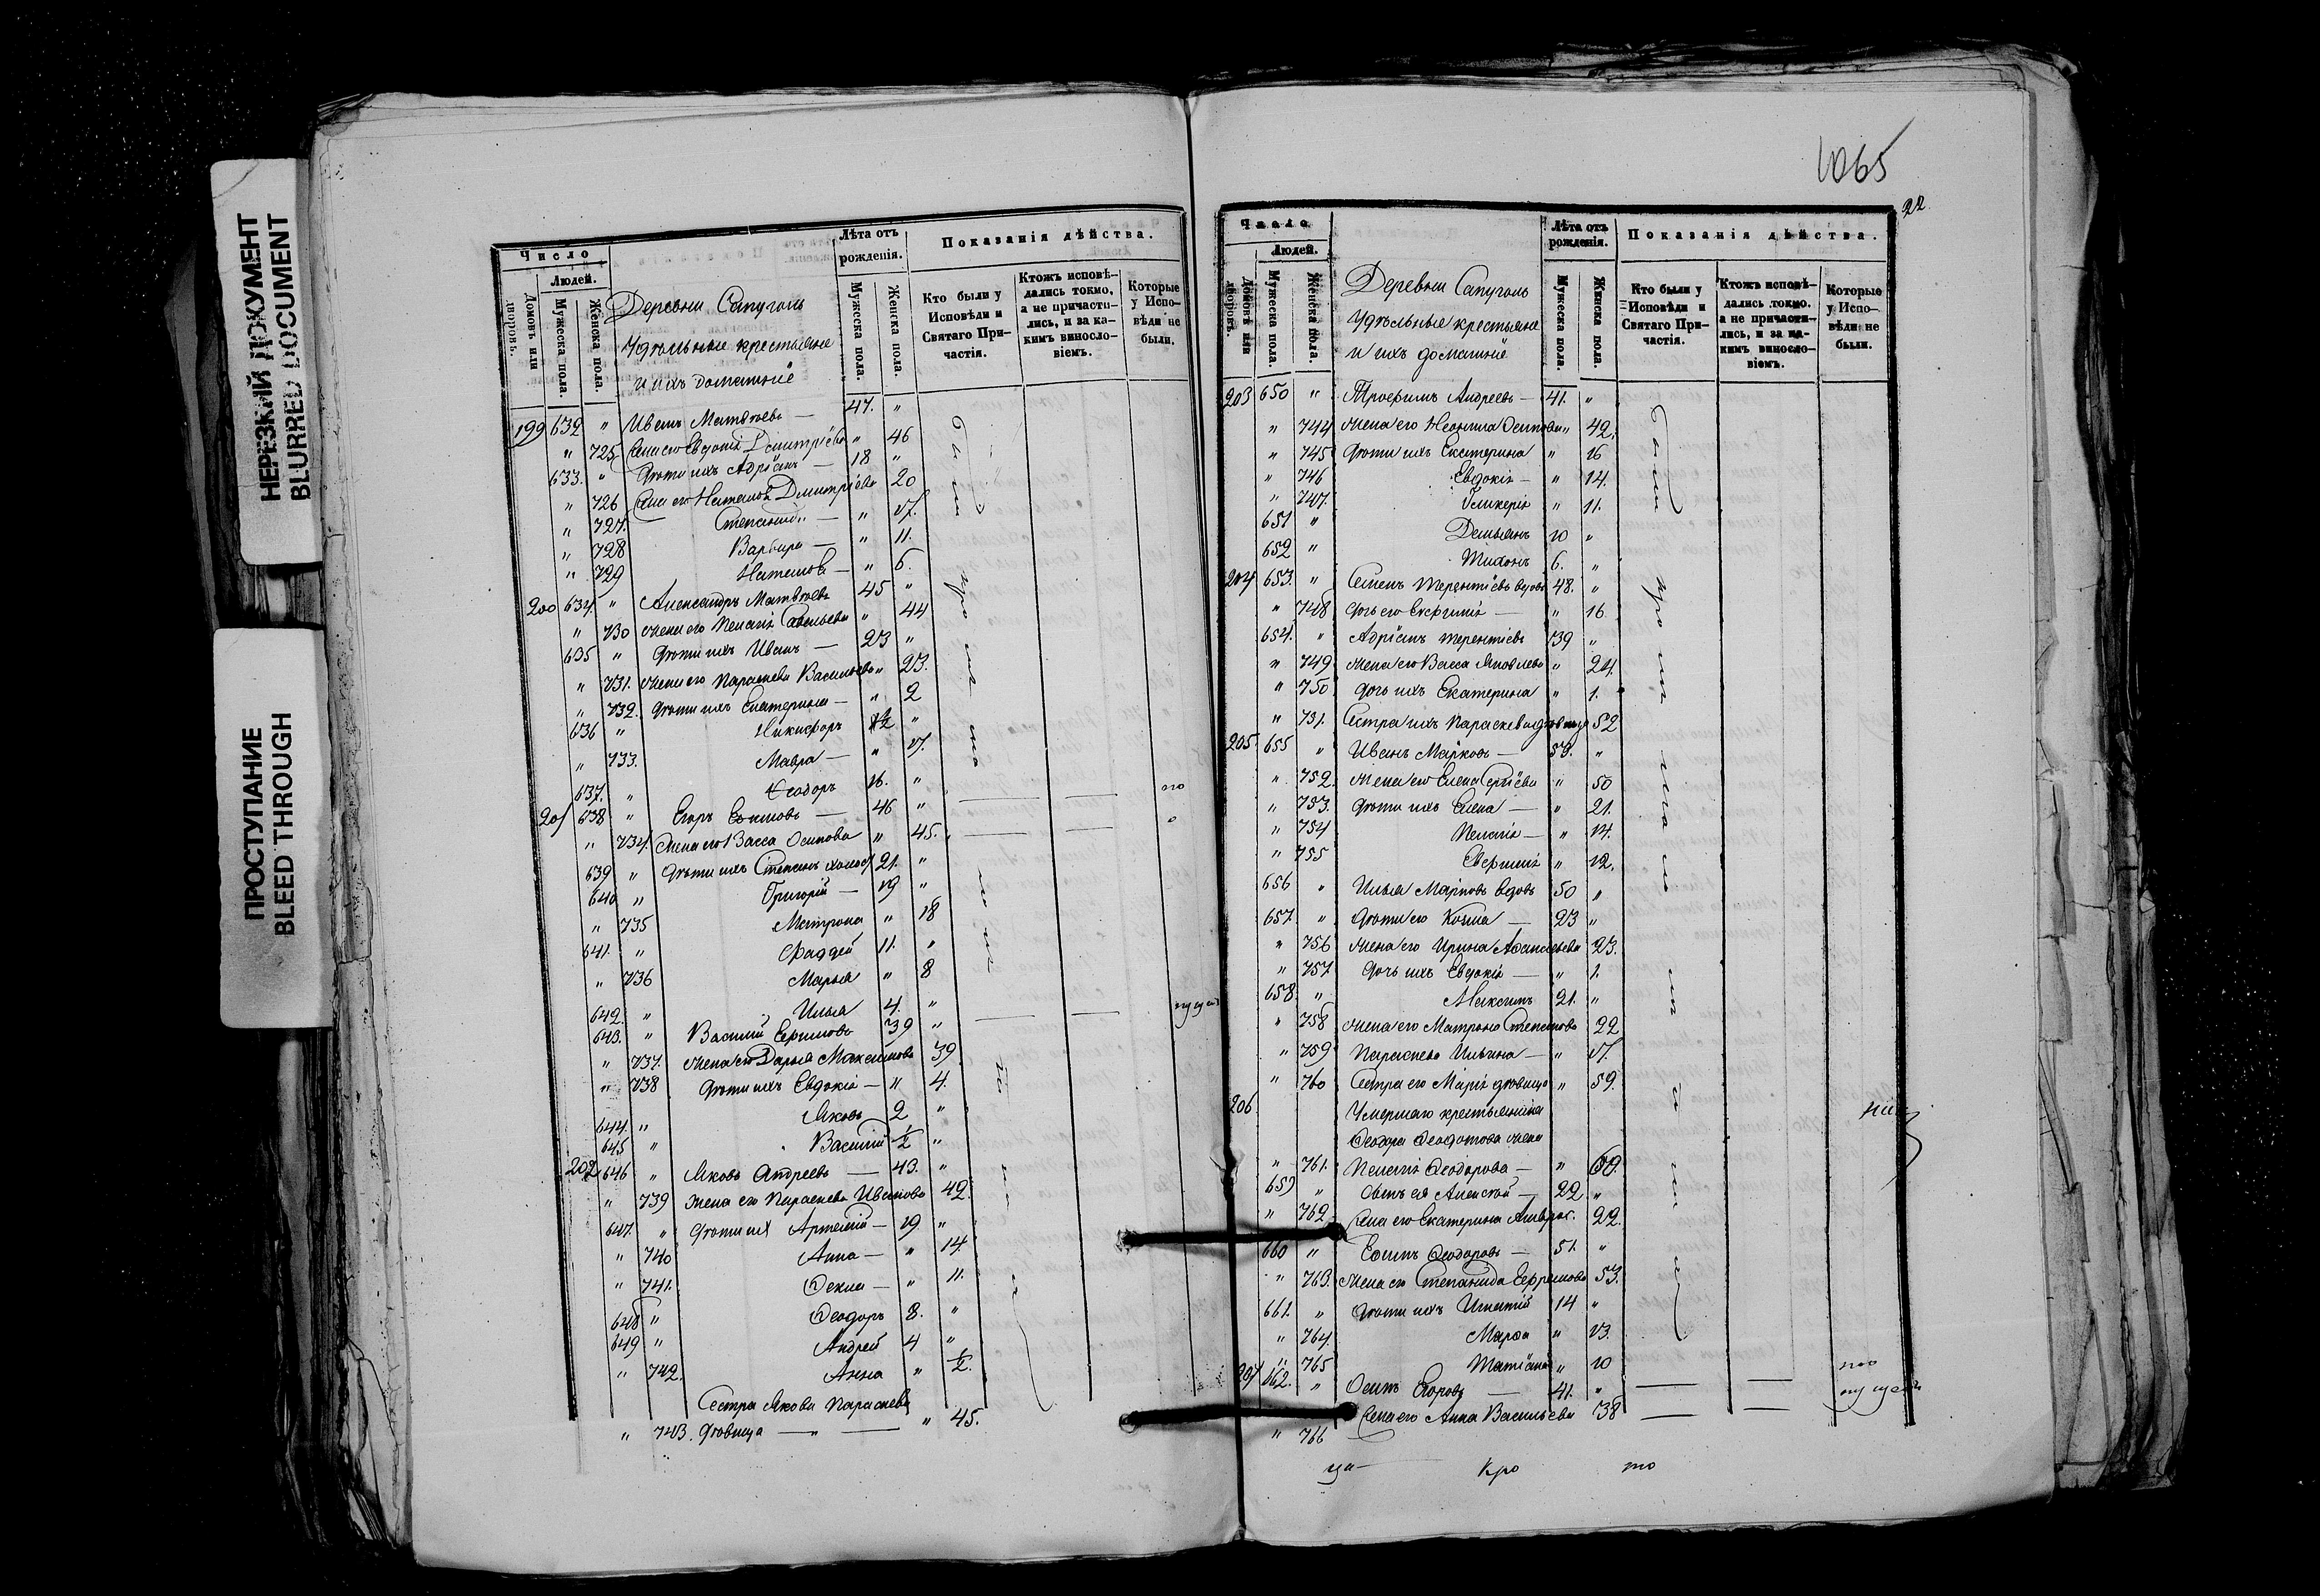 НЕРЕЗКИЙ ДОКУМЕНТ
BLURRED DOCUMENT
ПРОСТУПАНИЕ
BLEED THROUGH
Число
Людей.
Домовъ или дворовъ.
Мужеска пола.
Женска пола.
Деревни Сапуголь
Удѣльные крестьяне
и ихъ домашніе
Лѣта отъ рожденія.
Мужеска пола.
Женска пола.
Показанія дѣйства.
Кто были у Исповѣди и Святаго Причастія.
Ктожъ исповѣдались токмо, а не причастились, и за какимъ винословіемъ.
Которые у Исповѣди не были.
199 632 " Иванъ Матвѣевъ — 47. "
" 725 Жена его Евдокія Дмитріева " 46
633. " Дѣти ихъ Адріанъ — 18 "
" 726 Жена его Наталія Дмитріева 20
" 727. Степанида — " 17.
" 728 Варвара — " 11.
" 729 Наталія — " 6.
200 634. " Александръ Матвѣевъ 45 "
" 730 Жена его Пелагія Савельева " 44
635 " Дѣти ихъ Иванъ — 23 "
" 731. Жена его Параскева Васильева " 23.
" 732. Дѣти ихъ Екатерина — " 2
636 " Никифоръ 1/2 "
" 733. Мавра — " 17.
637. " Ѳеодоръ 16. "
201 638 " Егоръ Ефимовъ — 46 "
" 734. Жена его Васса Осипова " 45.
639 " Дѣти ихъ Степанъ холост 21. "
640 " Григорій — 19 "
" 735 Матрона " 18
641. " Фаддей 11. "
" 736 Марья " 8
642. " Илья 4. "
643. " Василій Ефимовъ 39 "
" 737. Жена его Дарья Максимова 39.
" 738 Дѣти ихъ Евдокія — " 4.
644. " Яковъ 2 "
645 " Василій 1/2 "
202 646 " Яковъ Андреевъ — 43. "
" 739 Жена его Параскева Иванова 42.
647. " Дѣти ихъ Артемій — 19 "
" 740 Анна — " 14.
" 741. Ѳекла — " 11.
648 " Ѳеодоръ 8. "
649 " Андрей 4 "
" 742. Анна " 1/2.
Сестра Якова Параскева
" 743. Дѣвица — " — " 45.
1065
22
Число
Людей.
Домовъ или дворовъ.
Мужеска пола.
Женска пола.
Деревни Сапуголь
Удѣльные крестьяне
и ихъ домашніе
Лѣта отъ рожденія.
Мужеска пола.
Женска пола.
Показанія дѣйства.
Кто были у Исповѣди и Святаго Причастія.
Ктожъ исповѣдались токмо, а не причастились, и за какимъ винословіемъ.
Которые у Исповѣди не были.
203 650 " Трофимъ Андреевъ — 41. "
" 744 Жена его Неонила Осипова " 42.
" 745 Дѣти ихъ Екатерина " 16
" 746 Евдокія — " 14.
" 747. Гликерія " 11.
651 " Демьянъ 10 "
652 " Тихонъ 6. "
204 653. " Семенъ Терентіевъ вдовъ 48. "
" 748 Дочь его Евфимія — " 16
654. " Адріанъ Терентіевъ 39 "
" 749. Жена его Васса Яковлева " 24.
" 750 Дочь ихъ Екатерина " 1.
" 751. Сестра ихъ Параскева дѣвица 52
205. 655 " Иванъ Марковъ — 53. "
" 752. Жена его Елена Сергіева " 50
" 753. Дѣти ихъ Елена — " 21.
" 754 Пелагія — " 14.
" 755 Евфимія " 12.
656 " Илья Марковъ вдовъ 50 "
657. " Дѣти его Козма — 23 "
" 756 Жена его Ирина Аѳанасьева 23.
" 757. Дочь ихъ Евдокія — " 1.
658. " Максимъ 21. "
" 758 Жена его Матрона Степанова 22
" 759 Параскева Ильина — " 17.
" 760 Сестра его Марія дѣвица " 59.
206 Умершаго крестьянина
Ѳеодора Ѳеодотова жена
" 761. Пелагія Ѳеодорова — " 50.
659 " Сынъ ея Алексѣй — 22 "
" 762. Жена его Екатерина Амврос. 22.
660 " Ефимъ Ѳеодоровъ — 51. "
" 763. Жена его Степанида Ефремова 53.
661. " Дѣти ихъ Игнатій 14 "
" 764. Марѳа " 13.
" 765 Татіана " 10
207 662. " Осипъ Егоровъ — 41. "
" 766 Жена его Анна Васильева 38